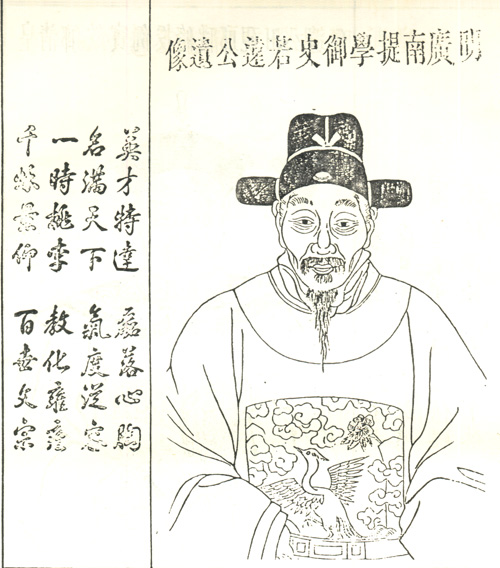 明廣南提學御史若公遺像
英才特達 磊落心胸
名滿天下 氣度從容
一時桃李 教化雍雍
千秋景仰 百世文宗